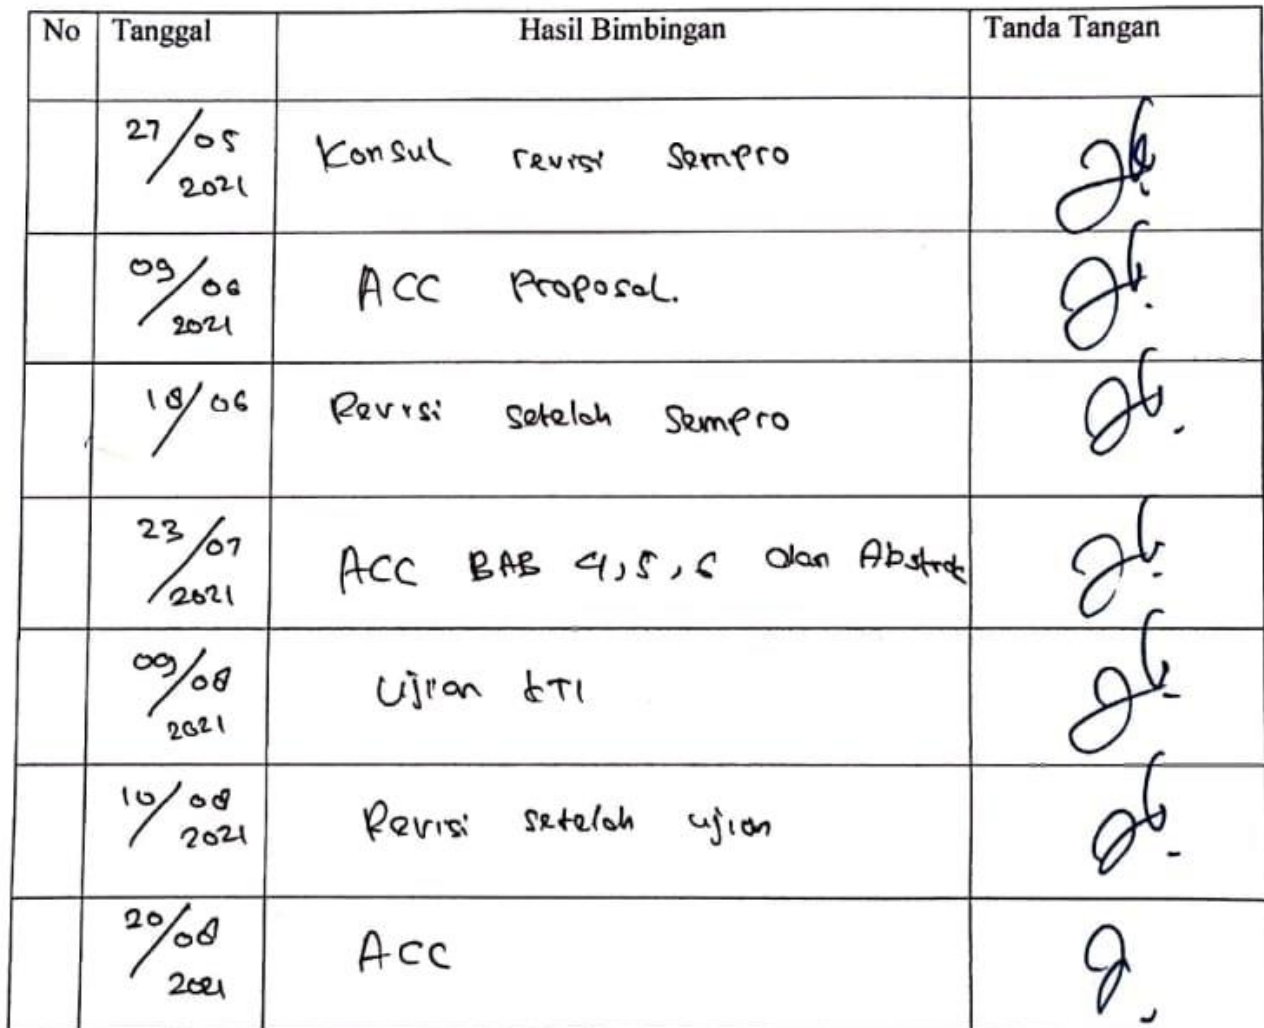 No Tanggal Hasil Bimbingan Tanda Tangan
27/05 2021 Konsul revisi Sempro
09/06 2021 ACC Proposal.
18/06 Revisi setelah Sempro
23/07 2021 ACC BAB 4,5,6 dan Abstrak
09/08 2021 Ujian KTI
10/08 2021 Revisi setelah ujian
20/08 2021 ACC